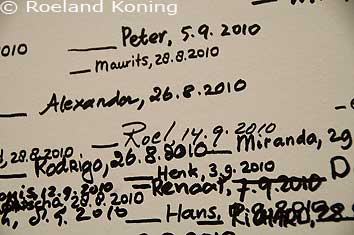 © Roeland Koning
2010
Peter, 5.9.2010
Maurits, 28.8.2010
Alexander, 26.8.2010
Roel, 14.9.2010
Miranda, 29
28.8.2010
Rodrigo, 26.8.2010
Henk, 3.9.2010
D
12.9.2010
Renaat, 7.9.2010
28.8.2010
Hans,